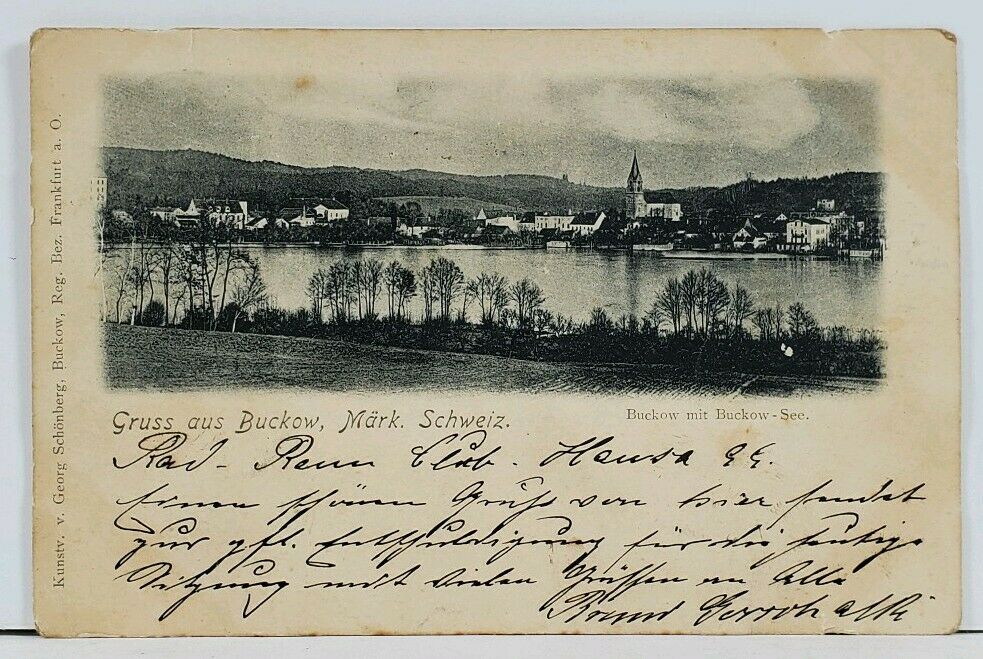 Kunstv. v. Georg Schönberg, Buckow, Reg. Bez. Frankfurt a. O.
Gruss aus Buckow, Märk. Schweiz.
Buckow mit Buckow-See.
Rad-Renn Club. Hansa
Einen schönen Gruß von hier sendet
zur gfl. Entschuldigung für die heutige
Sitzung mit vielen Grüssen an Alle